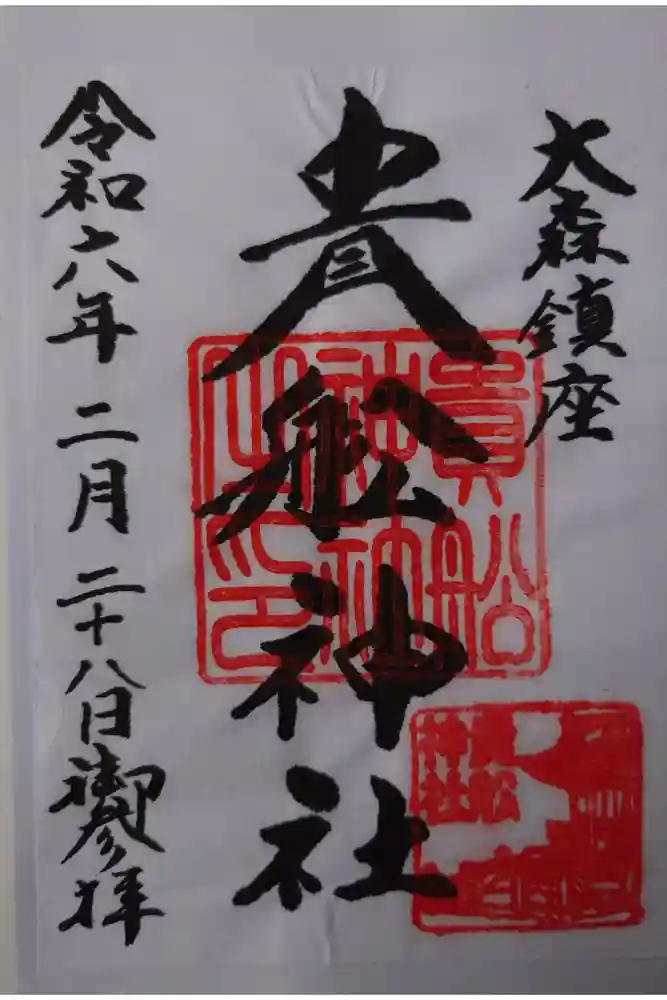 大森鎮座
貴船神社
令和六年二月二十八日御参拝
貴船
神社
之印
貴船
神社